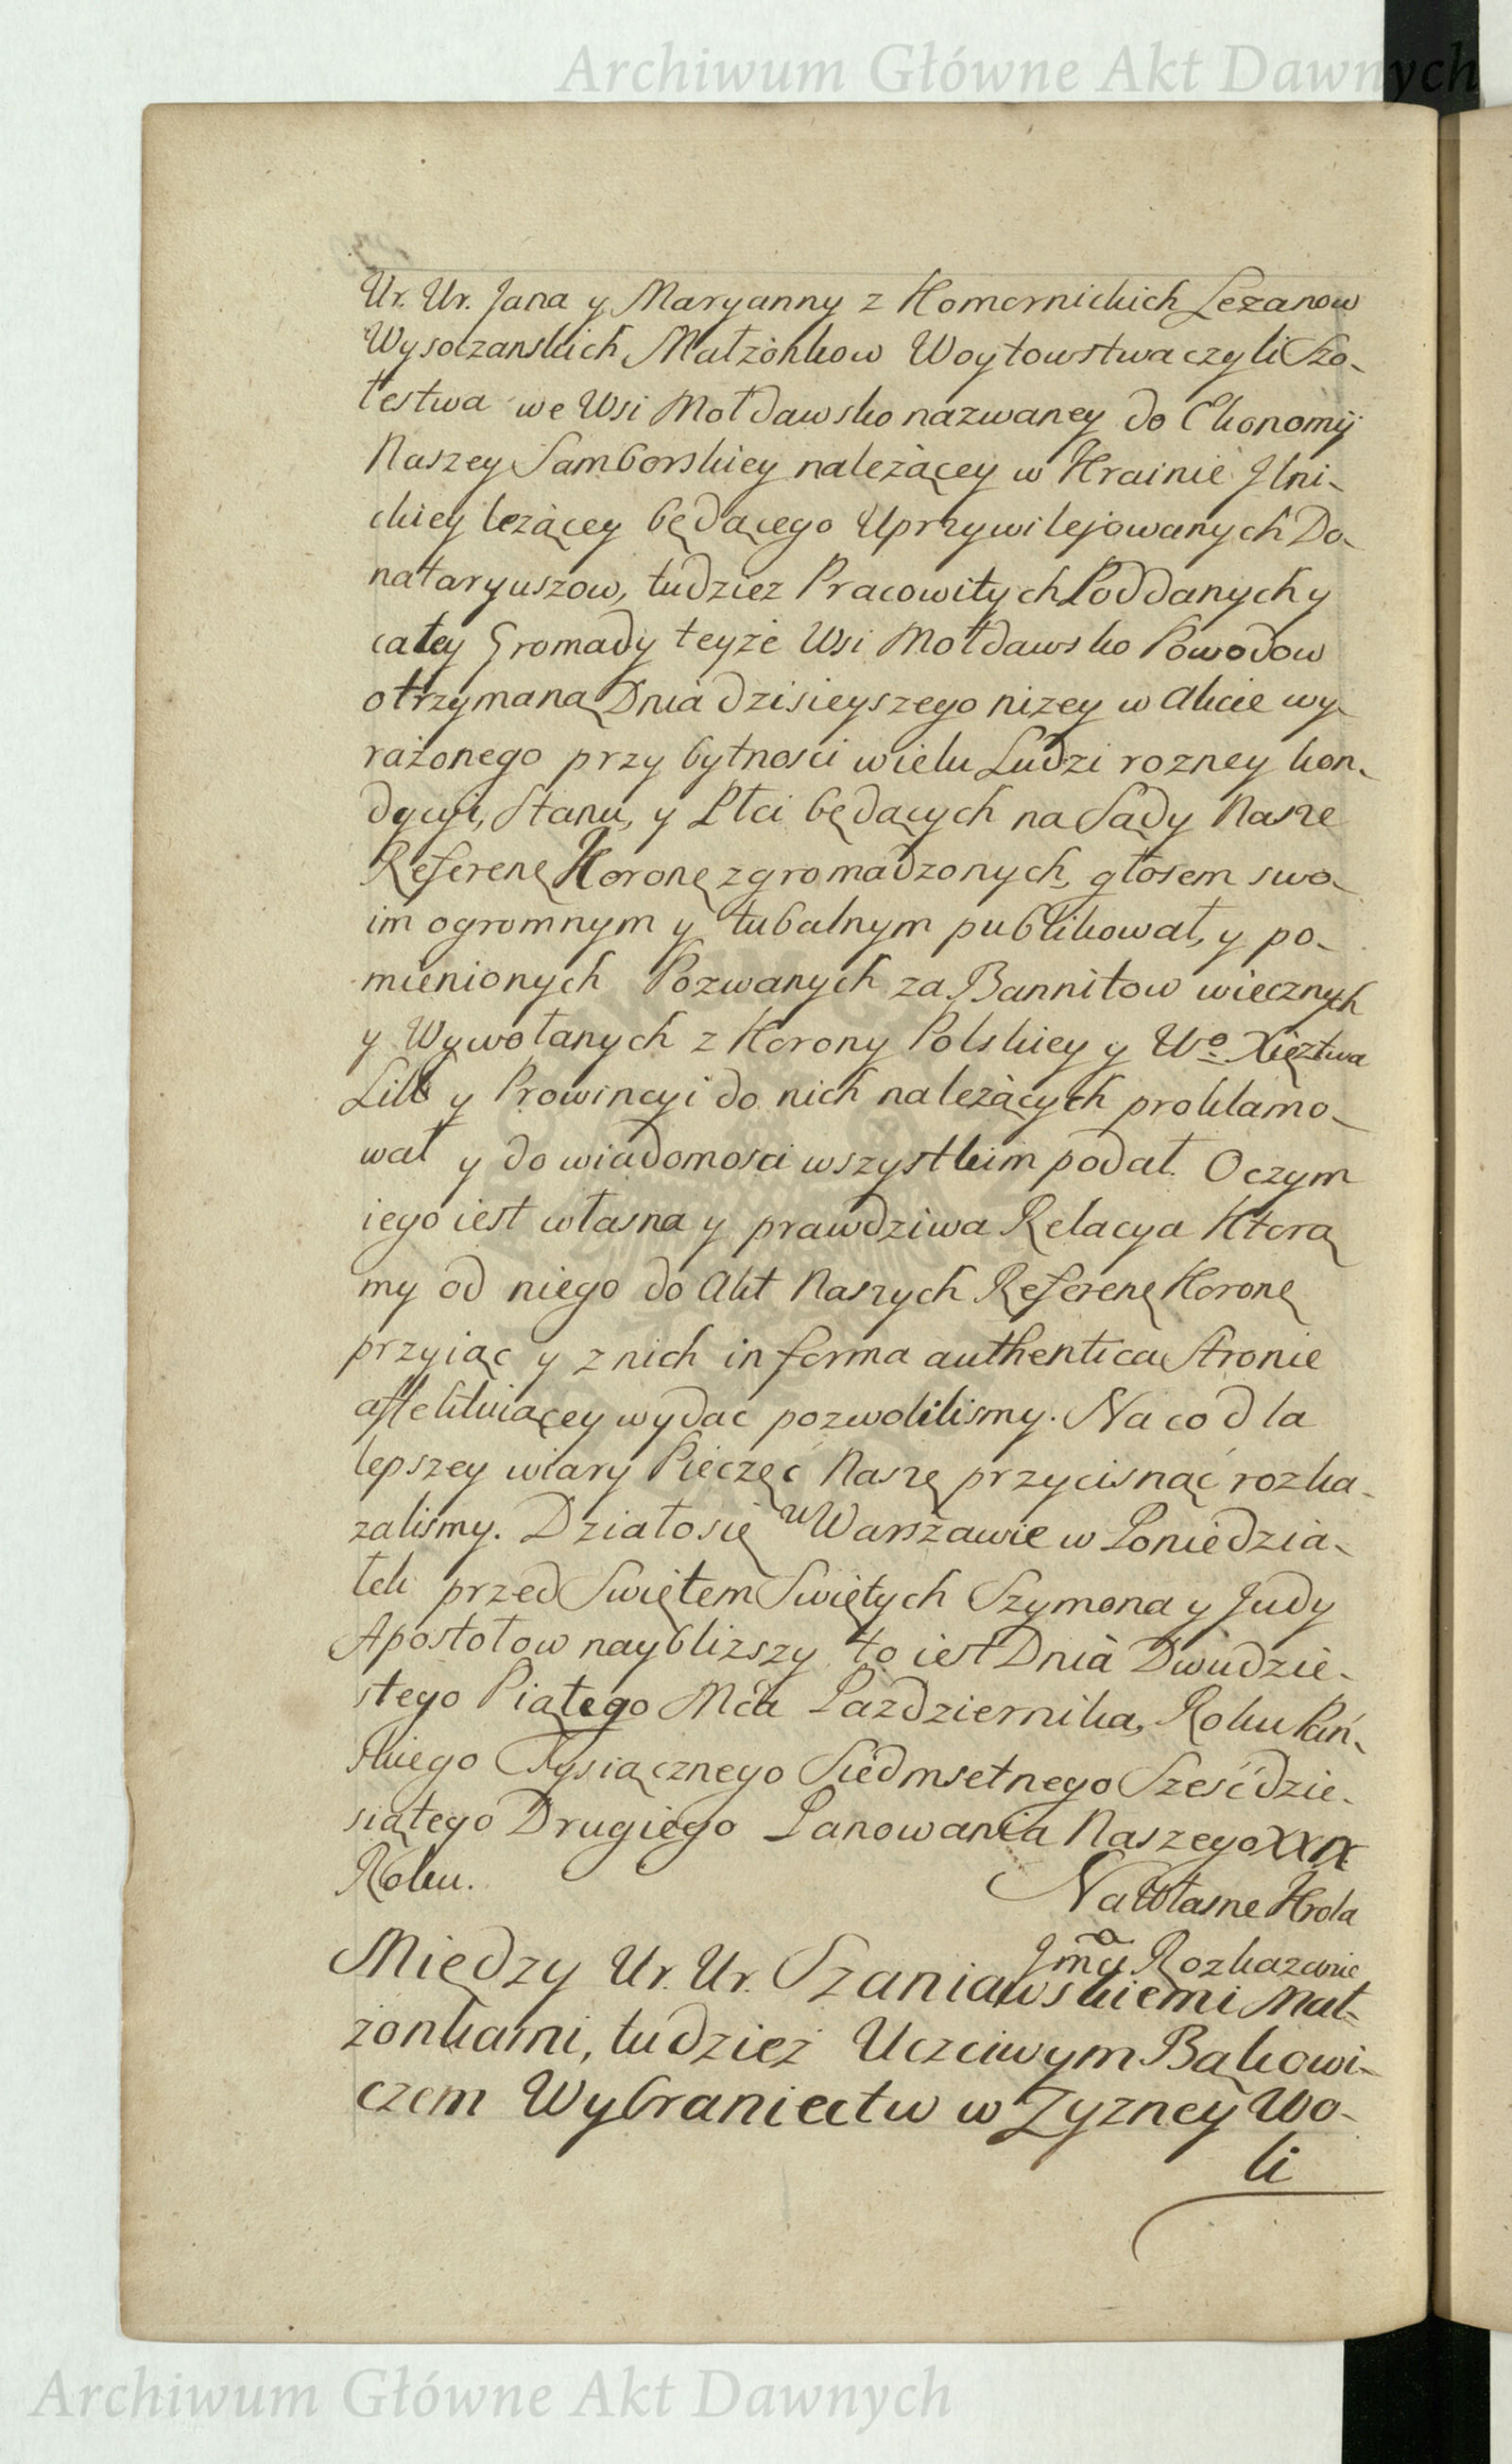 Archiwum Główne Akt Dawnych
Ur. Ur. Jana y Maryanny z Komornickich Lezanow
Wysoczanskich Małżonkow Woytowstwa czyli Szo-
łestwa we Wsi Mołdawsko nazwaney do Ekonomij
Naszey Samborskiey należącey w Krainie Ilni-
ckiey leżącey będącego Uprzywilejowanych Do-
nataryuszow, tudzież Pracowitych Poddanych y
całey Gromady teyże Wsi Mołdawsko Powodow
otrzymaną Dnia dzisieyszego niżey w Akcie wy-
rażonego przy bytnosci wielu Ludzi rozney kon-
dycyi, Stanu, y Płci będących na Sądy Nasze
Referenę Koronę zgromadzonych, głosem swo-
im ogromnym y tubalnym publikował, y po-
mienionych Pozwanych za Bannitow wiecznych
y Wywołanych z Korony Polskiey y Wo Xięztwa
Litt y Prowincyi do nich należących proklamo-
wał y do wiadomosci wszystkim podał. O czym
iego iest własna y prawdziwa Relacya Ktorą
my od niego do Akt Naszych Referenę Koronę
przyiąc y z nich in forma authentica Stronie
affektuiącey wydac pozwolilismy. Na co dla
lepszey wiary Pieczęć Naszę przycisnąć rozka-
zalismy. Działo się w Warszawie w Poniedzia-
łek przed Swiętem Swiętych Szymona y Judy
Apostołow naybliższy to iest Dnia Dwudzie-
stego Piątego Mca Pazdziernika, Roku Pań-
skiego Tysiącznego Siedmsetnego Sześćdzie-
siątego Drugiego Panowania Naszego XXIX
Roku.
Na Własne Krola
Jmci Rozkazanie
Między Ur. Ur. Szaniawskiemi Mał-
żonkami, tudzież Uczciwym Bąkowi-
czem Wybraniectw w Zyzney Wo-
li
Archiwum Główne Akt Dawnych